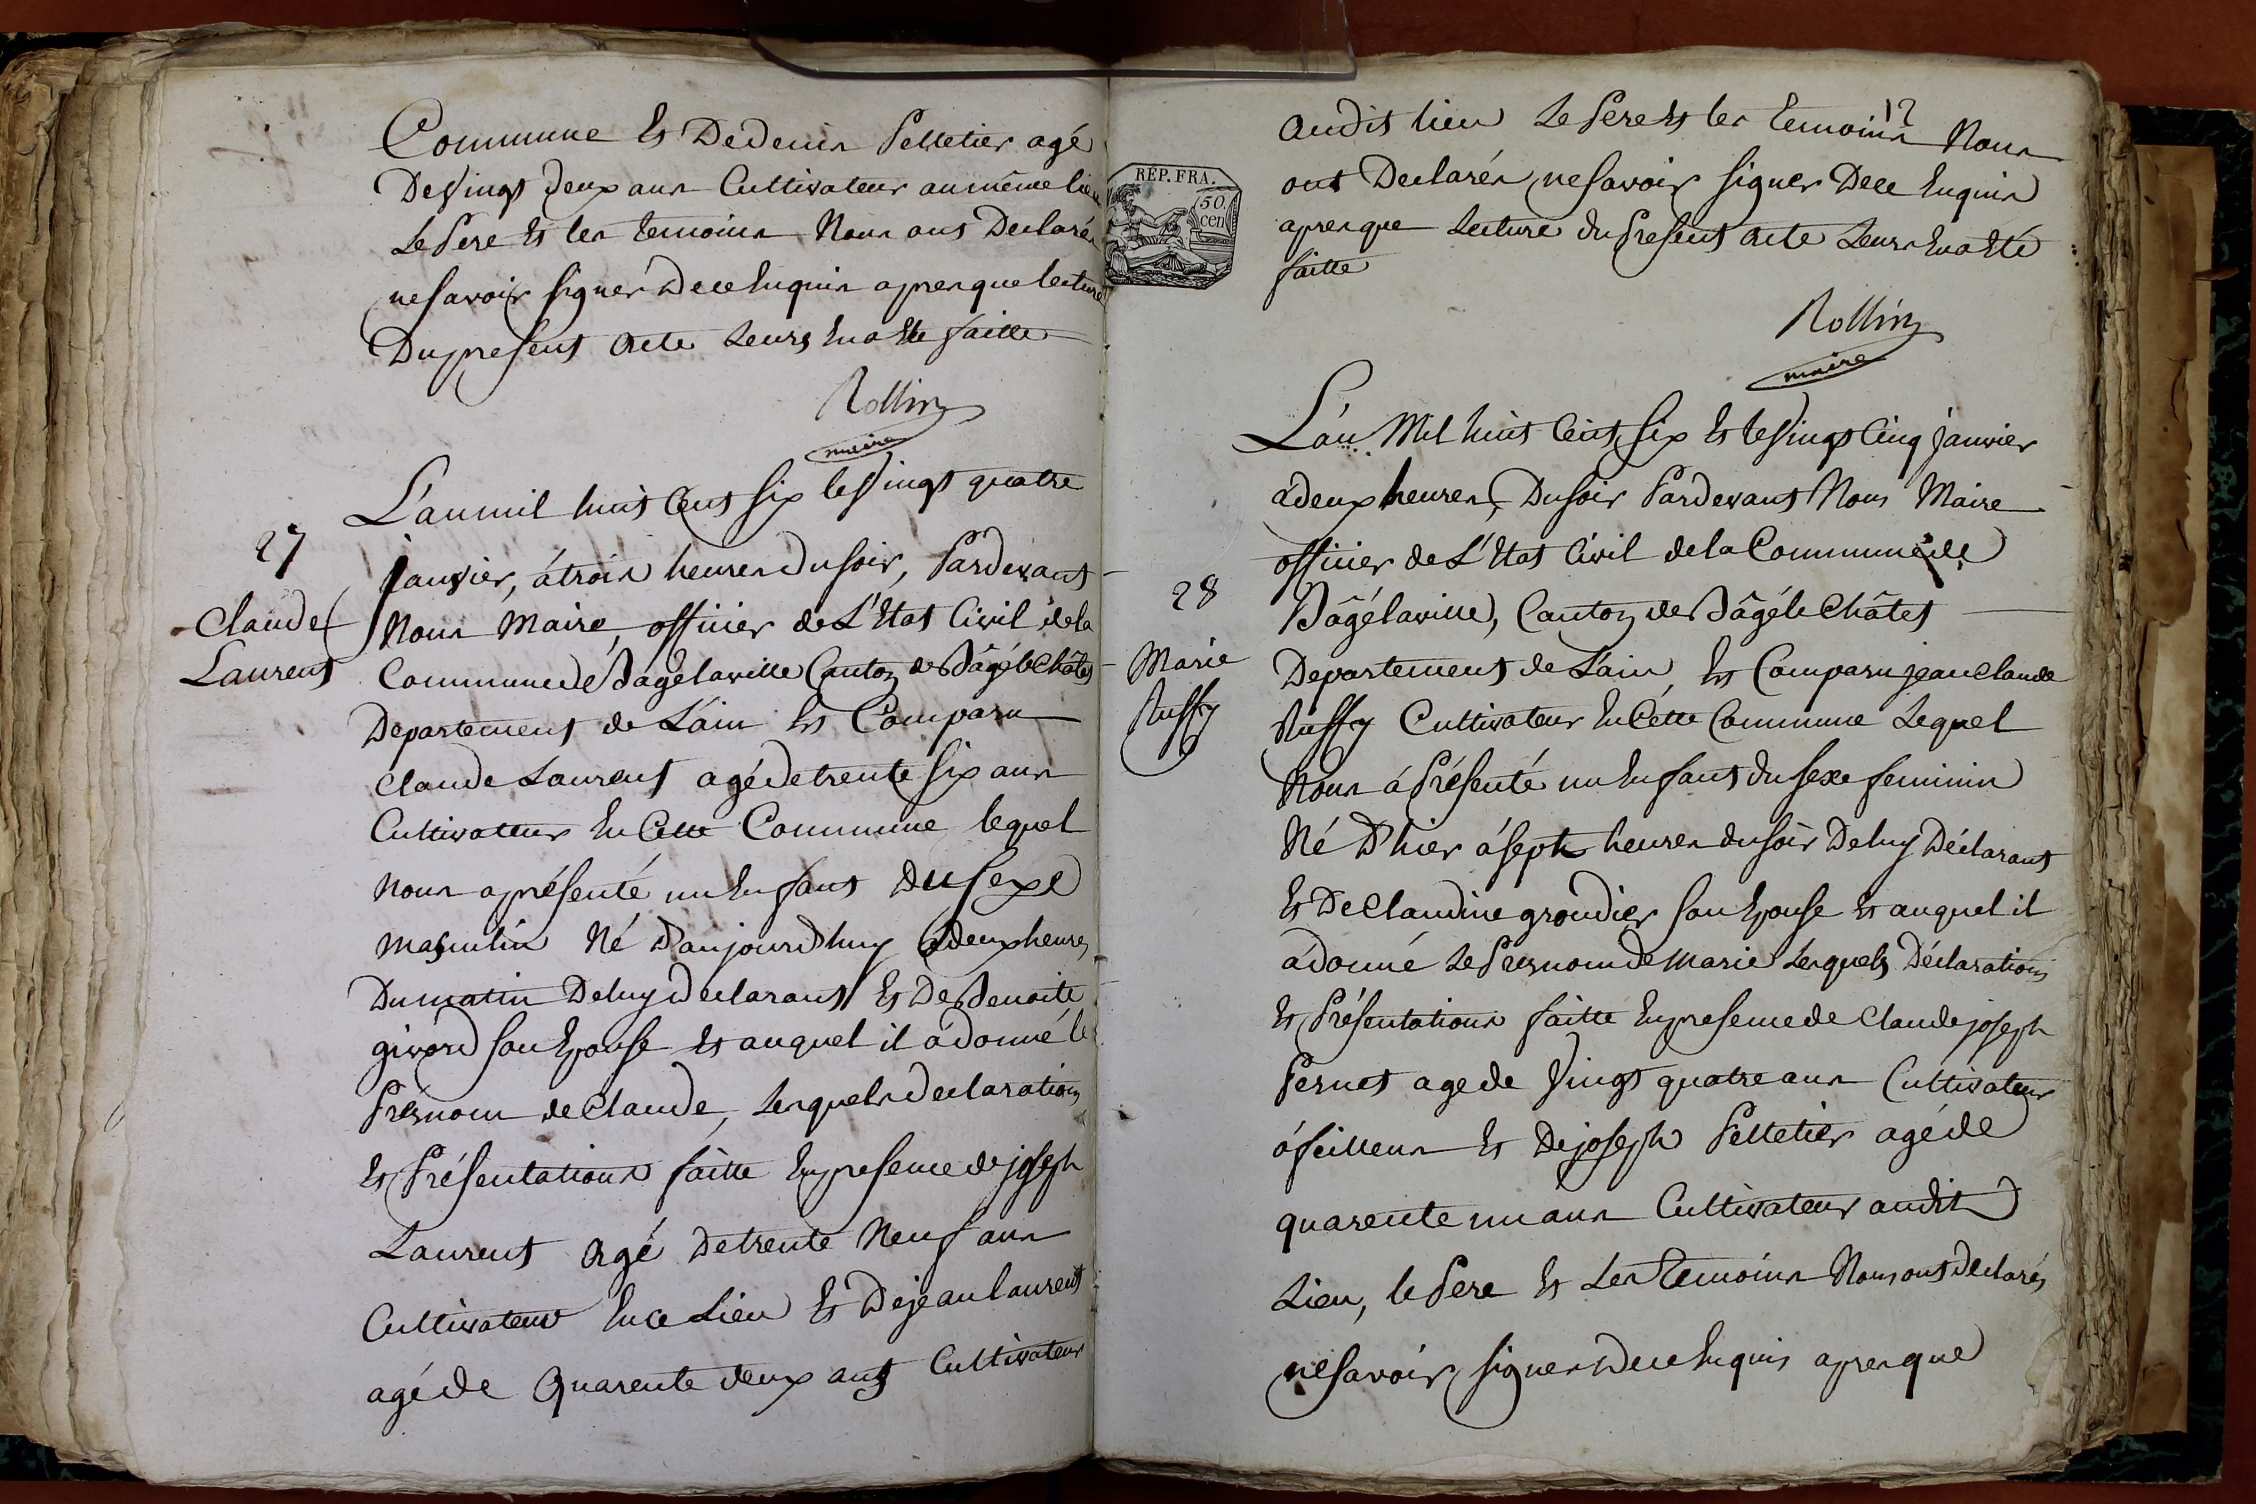 Commune Et De denis Pelletier agé
De Vingt deux ans Cultivateur au même lieu
Le Pere Et les temoins Nous ont Declarés
ne savoir signer De ce Enquis apres que lecture
Du present acte Leurs En a Eté faitte
Rollin
maire
27
Claude
Laurent
L'an mil huit Cent six le Vingt quatre
janvier, á trois heures du soir, Pardevant
Nous Maire, officier de L'Etat Civil de la
Commune de Bâgé laville Canton de Bâgé le Châtel
Departement de L'ain Et Comparu
Claude Laurent agé de trente six ans
Cultivateur En Cette Commune lequel
Nous a présenté un Enfant du sexe
masculin Né D'aujourd'huy á deux heures
Du matin De luy declarant Et De Benoite
givord son Epouse Et auquel il á donné le
Présnom de Claude, Lesquels declarations
Et Présentations faitte En presence de joseph
Laurent agé De trente Neuf ans
Cultivateur En ce Lieu Et De jean laurent
agé de Quarente deux ans Cultivateur
RÉP. FRA.
50
cen
12
audit lieu Le Pere Et les temoins Nous
ont Declarés ne savoir signer De ce Enquis
apres que Lecture du Present acte Leurs En a Eté
faitte
Rollin
maire
28
Marie
Ruffy
L'an Mil huit Cent six Et le Vingt Cinq janvier
á deux heures, Du soir Pardevant Nous Maire
officier de L'Etat Civil de la Commune de
Bâgé laville, Canton de Bâgé le Châtel
Departement de L'ain Et Comparu jean Claude
Ruffy Cultivateur En Cétte Commune Lequel
Nous á Présenté un Enfant du sexe feminin
Né D'hier á sept heures du soir De luy Déclarant
Et De Claudine grondier son Epouse Et auquel il
á donné Le Presnom de Marie Lesquels Déclarations
Et Présentations faitte En presence de Claude joseph
Pernet age de Vingt quatre ans Cultivateur
á feillens Et De joseph Pelletier agé de
quarente un ans Cultivateur audit
Lieu, le Pere Et Les temoins Nous ont declarés
ne savoir signer De ce Enquis apres que